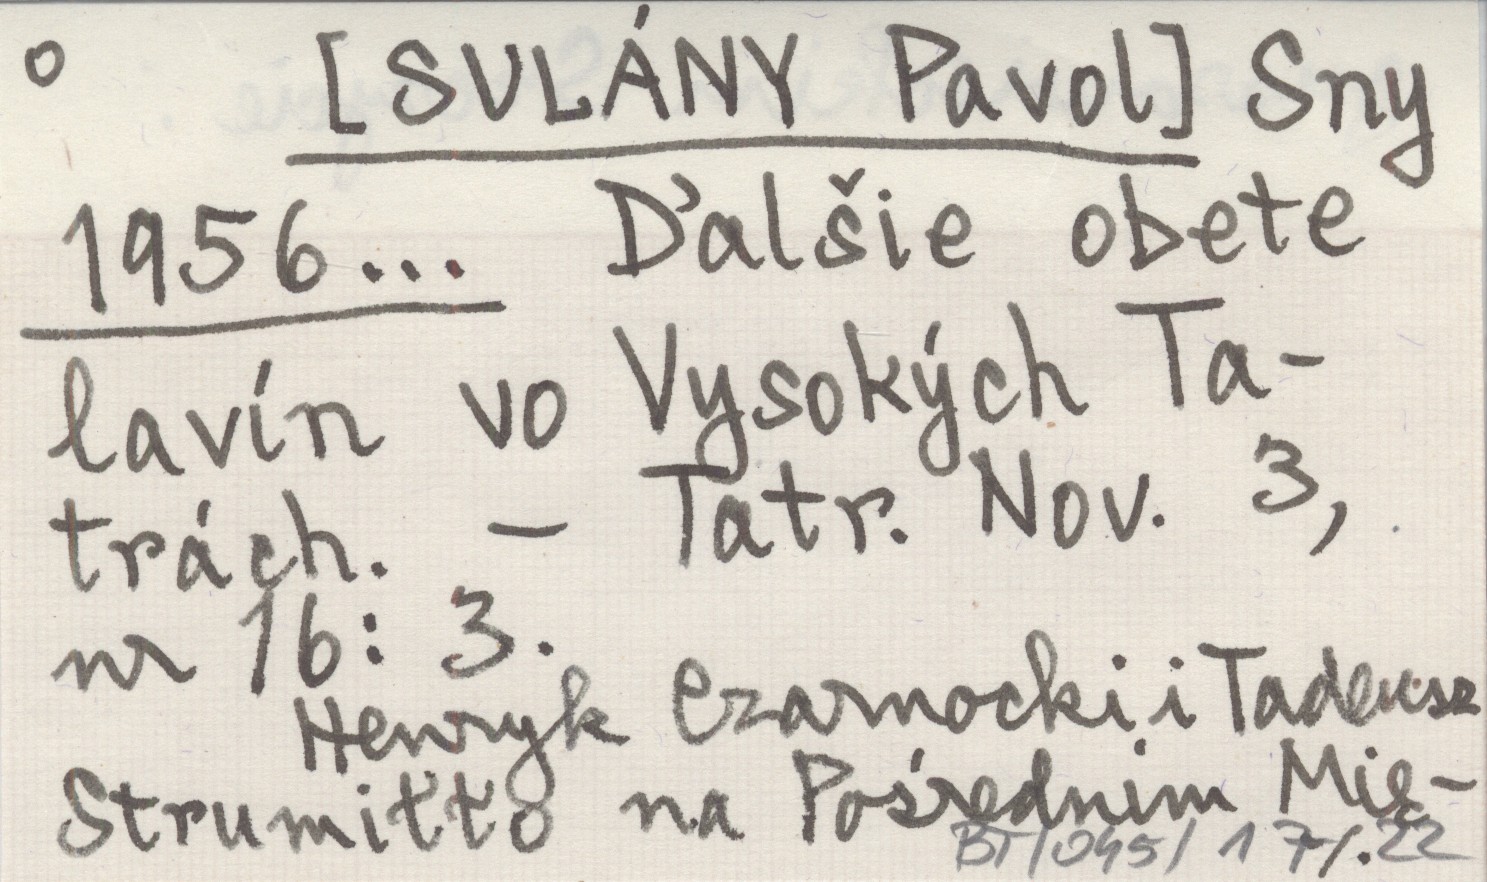 o [SULÁNY Pavol] Sny
1956... Ďalšie obete
lavín vo Vysokých Ta-
trách. – Tatr. Nov. 3,
nr 16: 3.
Henryk Czarnocki i Tadeusz
Strumiłło na Pośrednim Mię-
BT/045/1 7/.22